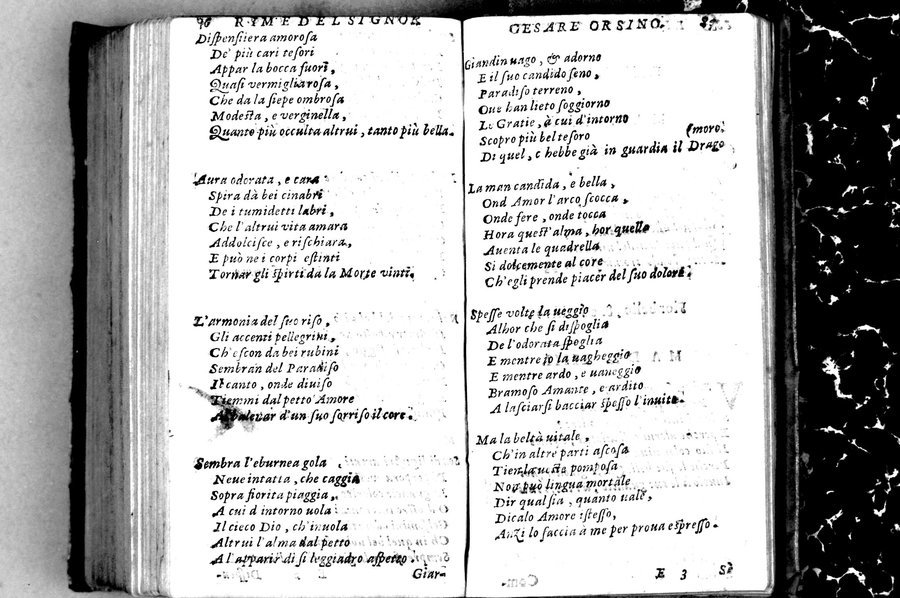 96 RIME DEL SIGNOR
Dispensiiera amorosa
De' più cari tesori
Appar la bocca fuori,
Quasi vermiglia rosa,
Che da la siepe ombrosa
Modesta, e verginella,
Quanto più occulta altrui, tanto più bella.
Aura odorata, e cara
Spira dà bei cinabri
De i tumidetti labri,
Che l'altrui vita amara
Addolcisce, e rischiara,
E può ne i corpi estinti
Tornar gli spirti da la Morte vinti.
L'armonia del suo riso,
Gli accenti pellegrini,
Ch'escon da bei rubini
Sembran del Paradiso
Il canto, onde diuiso
Tiemmi dal petto Amore
Al balenar d'un suo sorriso il core.
Sembra l'eburnea gola
Neue intatta, che caggia
Sopra fiorita piaggia,
A cui d intorno uola
Il cieco Dio, ch'inuola
Altrui l'alma dal petto
A l'apparir di si leggiadro aspetto
Giar-
CESARE ORSINO.
Giardin uago, & adorno
E il suo candido seno,
Paradiso terreno,
Oue han lieto soggiorno
Le Gratie, à cui d'intorno
Scopro più bel tesoro
(moro.
Di quel, c hebbe già in guardia il Drago
La man candida, e bella,
Ond Amor l'arco scocca,
Onde fere, onde tocca
Hora quest'alma, hor quella
Auenta le quadrella
Si dolcemente al core
Ch'egli prende piacer del suo dolore.
Spesse volte la ueggio
Alhor che si dispoglia
De l'odorata spoglia
E mentre io la uagheggio
E mentre ardo, e uaneggio
Bramoso Amante, e ardito
A lasciarsi bacciar spesso l'inuito.
Ma la beltà uitale,
Ch'in altre parti ascosa
Tien la uista pomposa
Non può lingua mortale
Dir qual sia, quanto uale,
Dicalo Amore istesso,
Anzi lo faccia à me per proua espresso.
E 3 Sè